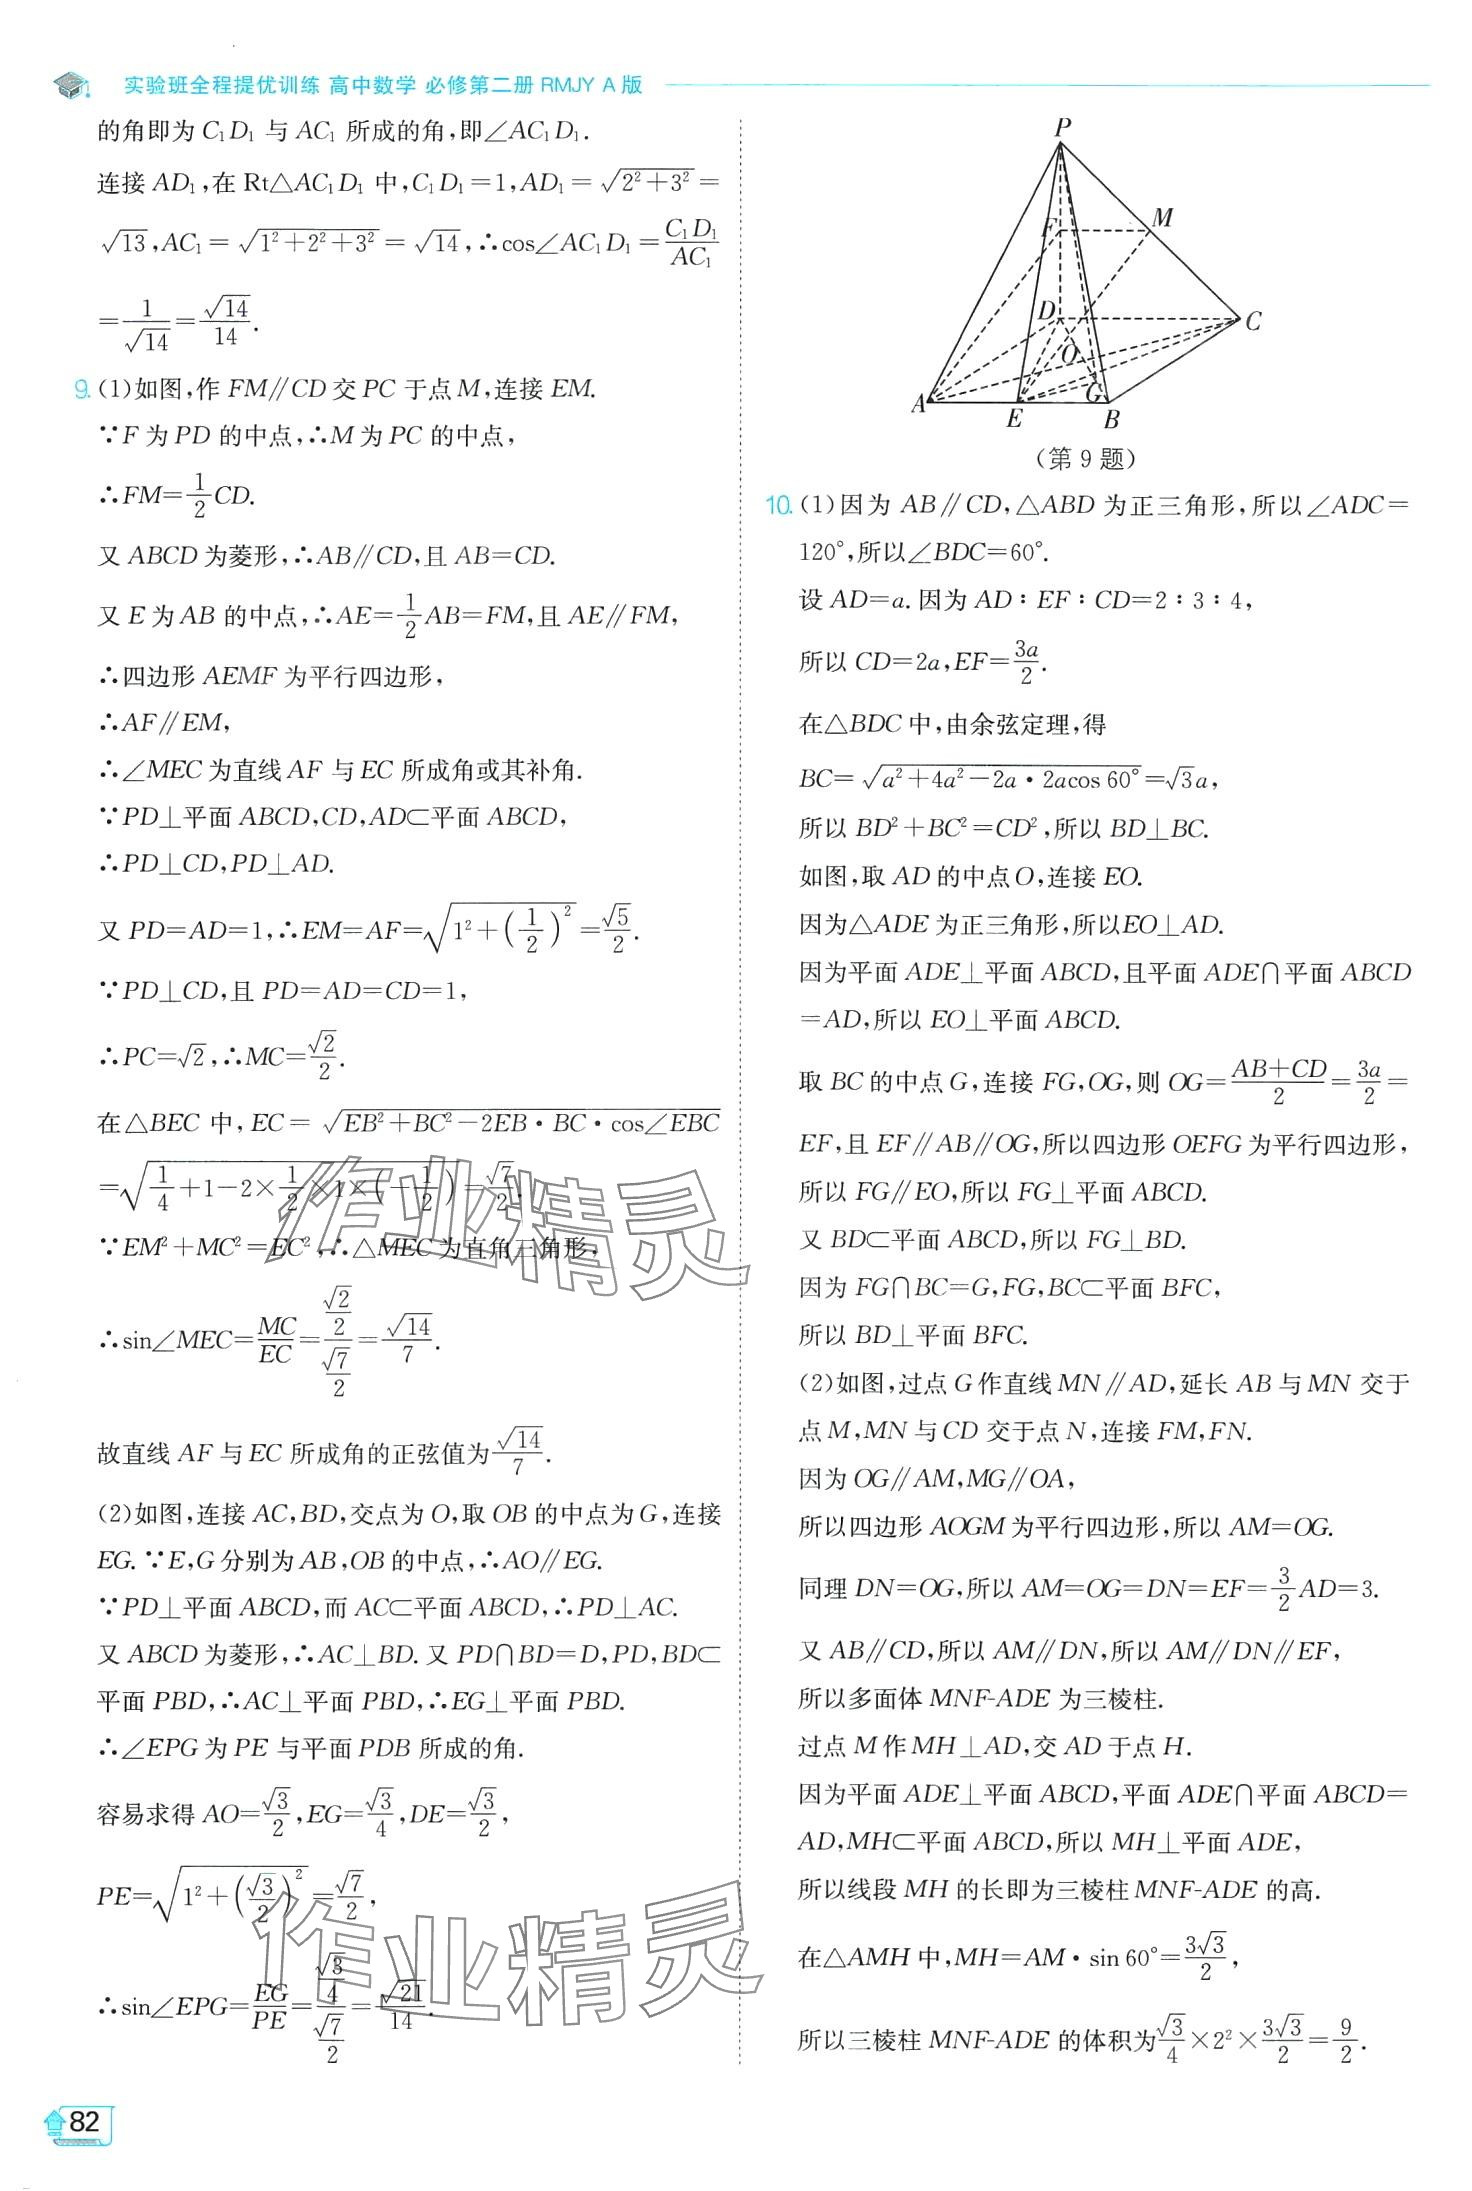 实验班全程提优训练 高中数学 必修第二册 RMJY A 版
的角即为 C₁D₁ 与 AC₁ 所成的角,即∠AC₁D₁.
连接 AD₁,在 Rt△AC₁D₁ 中,C₁D₁=1,AD₁=√(2²+3²)=
√13,AC₁=√(1²+2²+3²)=√14,∴cos∠AC₁D₁=C₁D₁/AC₁
=1/√14=√14/14.
9. (1)如图,作 FM∥CD 交 PC 于点 M,连接 EM.
∵F 为 PD 的中点,∴M 为 PC 的中点,
∴FM=1/2CD.
又 ABCD 为菱形,∴AB∥CD,且 AB=CD.
又 E 为 AB 的中点,∴AE=1/2AB=FM,且 AE∥FM,
∴四边形 AEMF 为平行四边形,
∴AF∥EM,
∴∠MEC 为直线 AF 与 EC 所成角或其补角.
∵PD⊥平面 ABCD,CD,AD⊂平面 ABCD,
∴PD⊥CD,PD⊥AD.
又 PD=AD=1,∴EM=AF=√(1²+(1/2)²)=√5/2.
∵PD⊥CD,且 PD=AD=CD=1,
∴PC=√2,∴MC=√2/2.
在△BEC 中,EC=√(EB²+BC²-2EB·BC·cos∠EBC)
=√(1/4+1-2×1/2×1×(-1/2))=√7/2.
∵EM²+MC²=EC²,∴△MEC 为直角三角形,
∴sin∠MEC=MC/EC=(√2/2)/(√7/2)=√14/7.
故直线 AF 与 EC 所成角的正弦值为√14/7.
(2)如图,连接 AC,BD,交点为 O,取 OB 的中点为 G,连接
EG.∵E,G 分别为 AB,OB 的中点,∴AO∥EG.
∵PD⊥平面 ABCD,而 AC⊂平面 ABCD,∴PD⊥AC.
又 ABCD 为菱形,∴AC⊥BD.又 PD∩BD=D,PD,BD⊂
平面 PBD,∴AC⊥平面 PBD,∴EG⊥平面 PBD.
∴∠EPG 为 PE 与平面 PDB 所成的角.
容易求得 AO=√3/2,EG=√3/4,DE=√3/2,
PE=√(1²+(√3/2)²)=√7/2,
∴sin∠EPG=EG/PE=(√3/4)/(√7/2)=√21/14.
P
F
M
D
C
O
G
A
E
B
(第 9 题)
10. (1)因为 AB∥CD,△ABD 为正三角形,所以∠ADC=
120°,所以∠BDC=60°.
设 AD=a.因为 AD∶EF∶CD=2∶3∶4,
所以 CD=2a,EF=3a/2.
在△BDC 中,由余弦定理,得
BC=√(a²+4a²-2a·2acos 60°)=√3a,
所以 BD²+BC²=CD²,所以 BD⊥BC.
如图,取 AD 的中点 O,连接 EO.
因为△ADE 为正三角形,所以EO⊥AD.
因为平面 ADE⊥平面 ABCD,且平面 ADE∩平面 ABCD
=AD,所以 EO⊥平面 ABCD.
取 BC 的中点 G,连接 FG,OG,则 OG=(AB+CD)/2=3a/2=
EF,且 EF∥AB∥OG,所以四边形 OEFG 为平行四边形,
所以 FG∥EO,所以 FG⊥平面 ABCD.
又 BD⊂平面 ABCD,所以 FG⊥BD.
因为 FG∩BC=G,FG,BC⊂平面 BFC,
所以 BD⊥平面 BFC.
(2)如图,过点 G 作直线 MN∥AD,延长 AB 与 MN 交于
点 M,MN 与 CD 交于点 N,连接 FM,FN.
因为 OG∥AM,MG∥OA,
所以四边形 AOGM 为平行四边形,所以 AM=OG.
同理 DN=OG,所以 AM=OG=DN=EF=3/2AD=3.
又 AB∥CD,所以 AM∥DN,所以 AM∥DN∥EF,
所以多面体 MNF-ADE 为三棱柱.
过点 M 作 MH⊥AD,交 AD 于点 H.
因为平面 ADE⊥平面 ABCD,平面 ADE∩平面 ABCD=
AD,MH⊂平面 ABCD,所以 MH⊥平面 ADE,
所以线段 MH 的长即为三棱柱 MNF-ADE 的高.
在△AMH 中,MH=AM·sin 60°=3√3/2,
所以三棱柱 MNF-ADE 的体积为√3/4×2²×3√3/2=9/2.
作业精灵
作业精灵
82